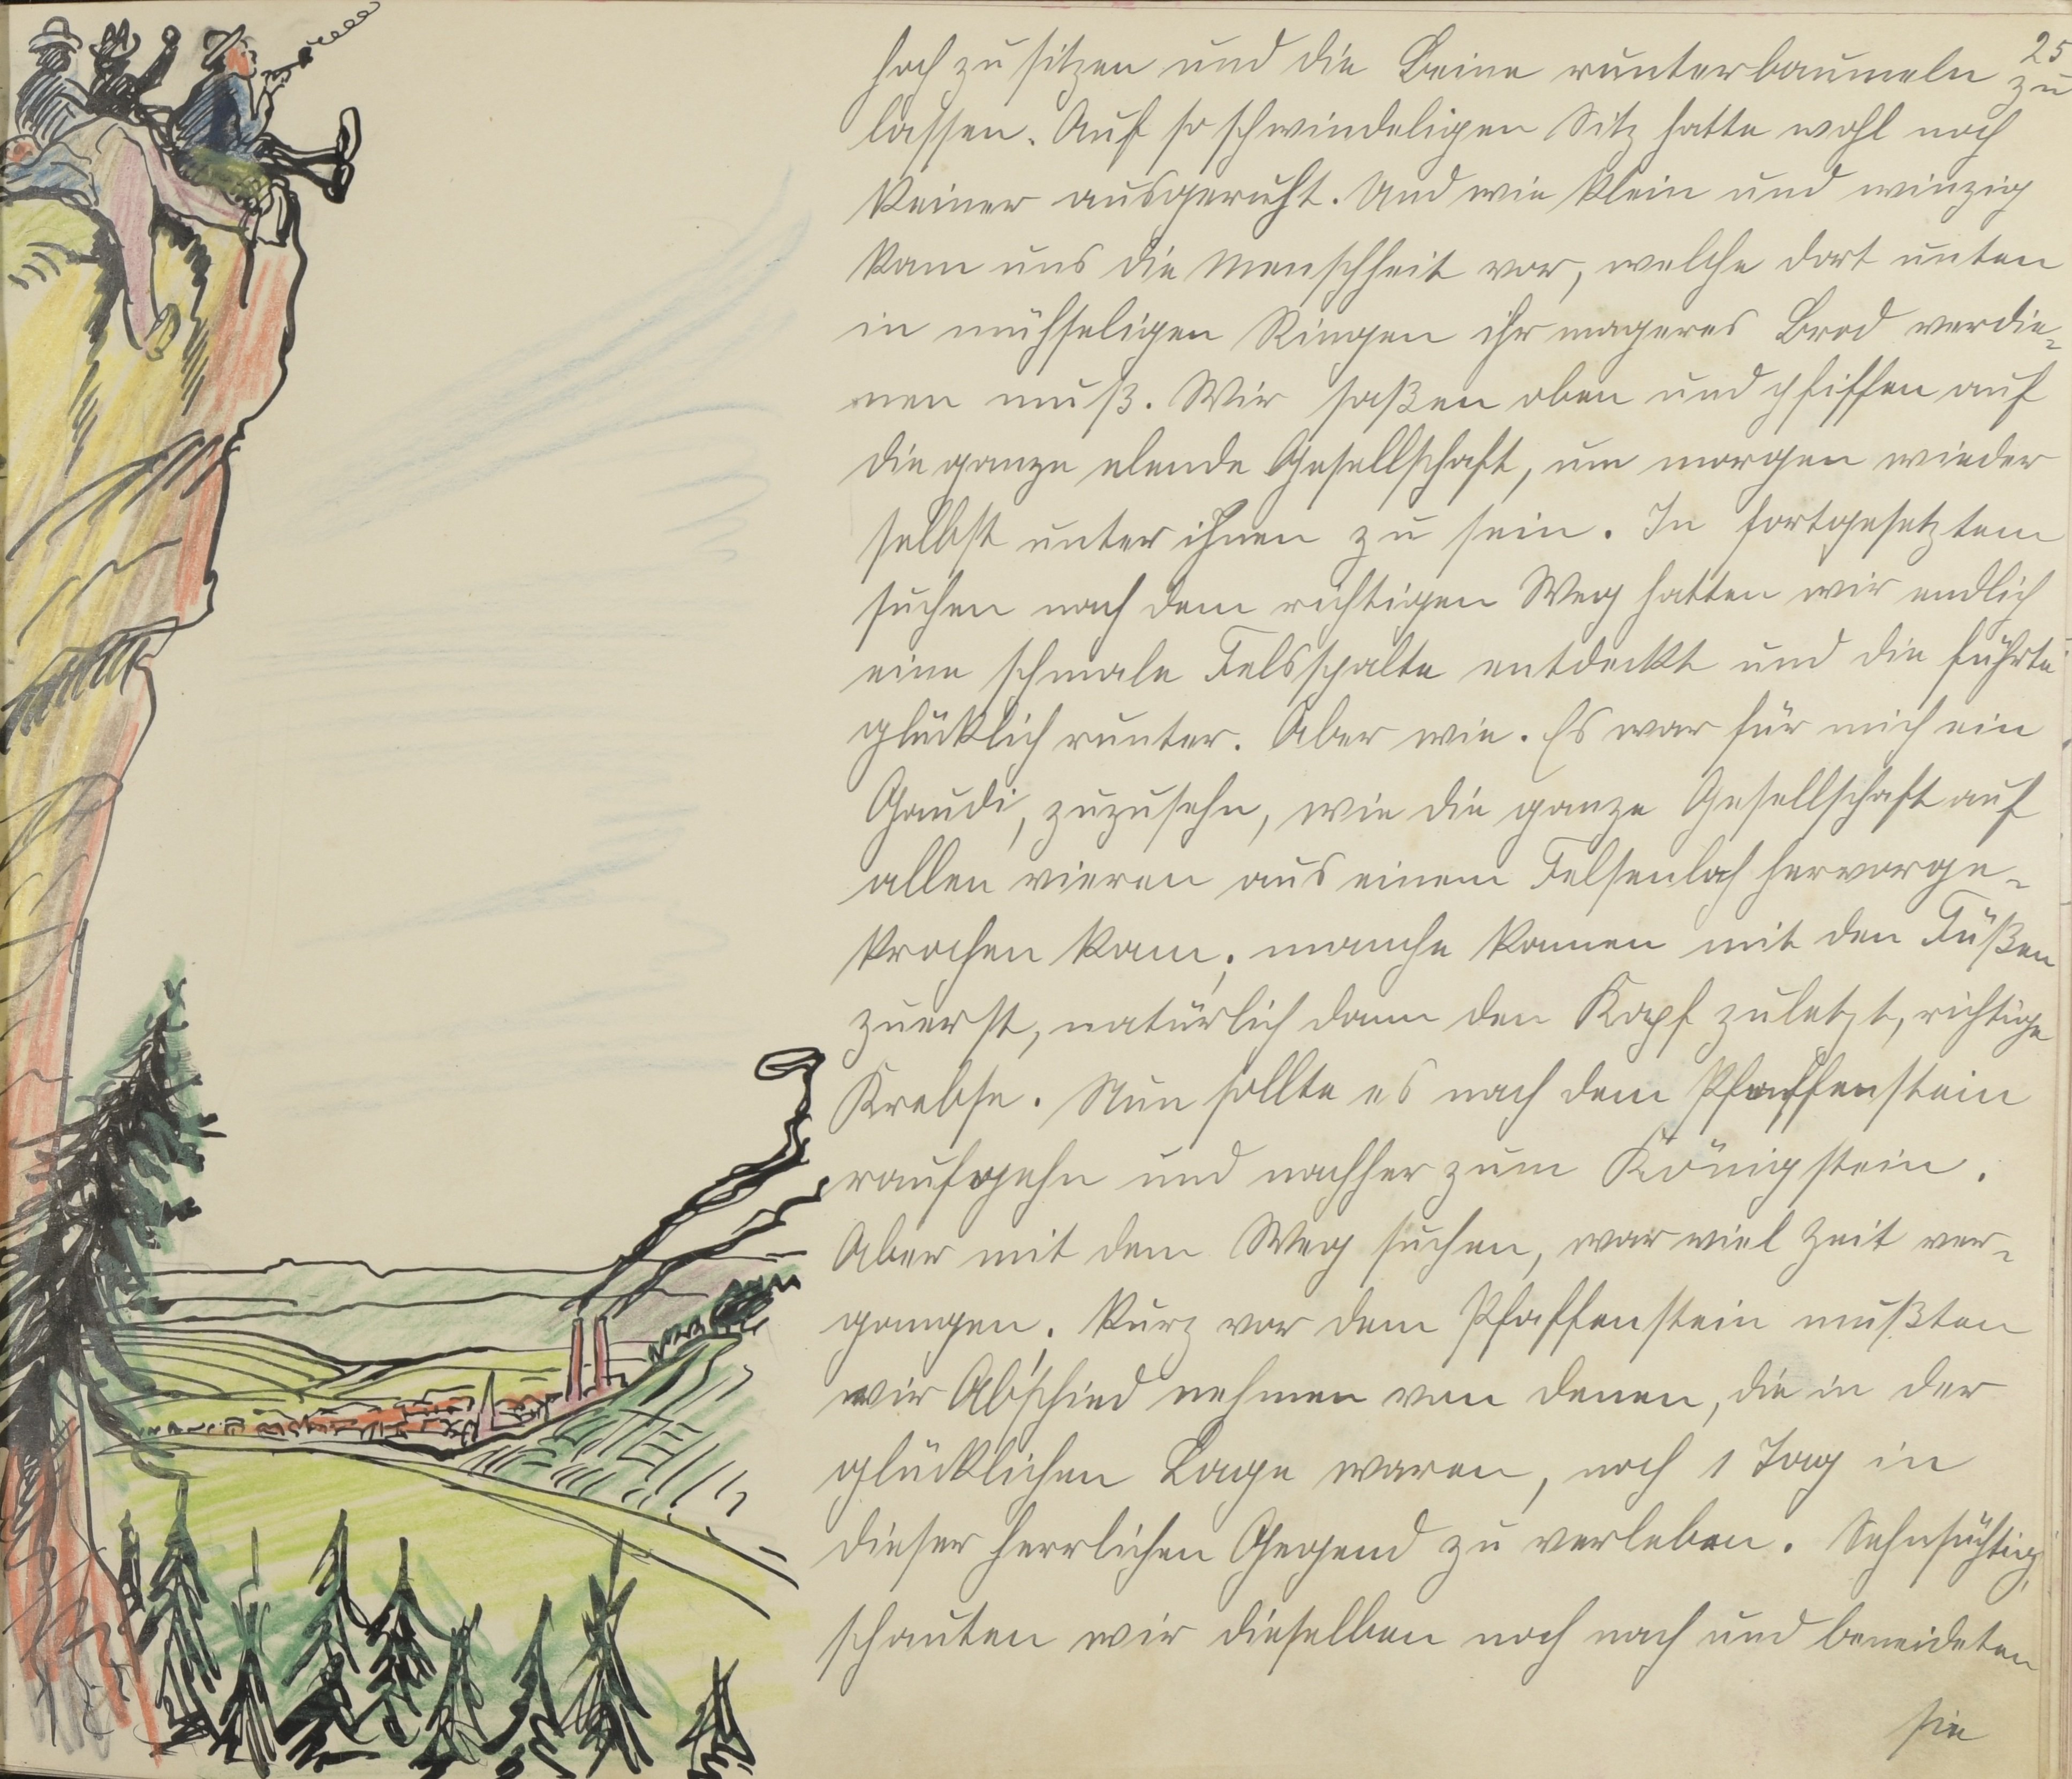 25
hoch zu sitzen und die Beine runterbaumeln zu
lassen. Auf so schwindeligen Sitz hatte wohl noch
keiner ausgeruht. Und wie klein und winzig
kam uns die Menschheit vor, welche dort unten
in mühseligen Ringen ihr mageres Brod verdie-
nen muß. Wir saßen oben und pfiffen auf
die ganze elende Gesellschaft, um morgen wieder
selbst unter ihnen zu sein. In fortgesetztem
suchen nach dem richtigen Weg hatten wir endlich
eine schmale Felsspalte entdeckt und die führte
glücklich runter. Aber wie. Es war für mich ein
Gaudi, zuzusehn, wie die ganze Gesellschaft auf
allen vieren aus einem Felsenloch hervorge-
krochen kam; manche kamen mit den Füßen
zuerst, natürlich dann den Kopf zuletzt, richtige
Krebse. Nun sollte es nach dem Pfaffenstein
raufgehn und nachher zum Königstein.
Aber mit dem Weg suchen, war viel Zeit ver-
gangen. Kurz vor dem Pfaffenstein mußten
wir Abschied nehmen von denen, die in der
glücklichen Lage waren, noch 1 Tag in
dieser herrlichen Gegend zu verleben. Sehnsüchtig
schauten wir dieselben noch nach und beneideten
sie